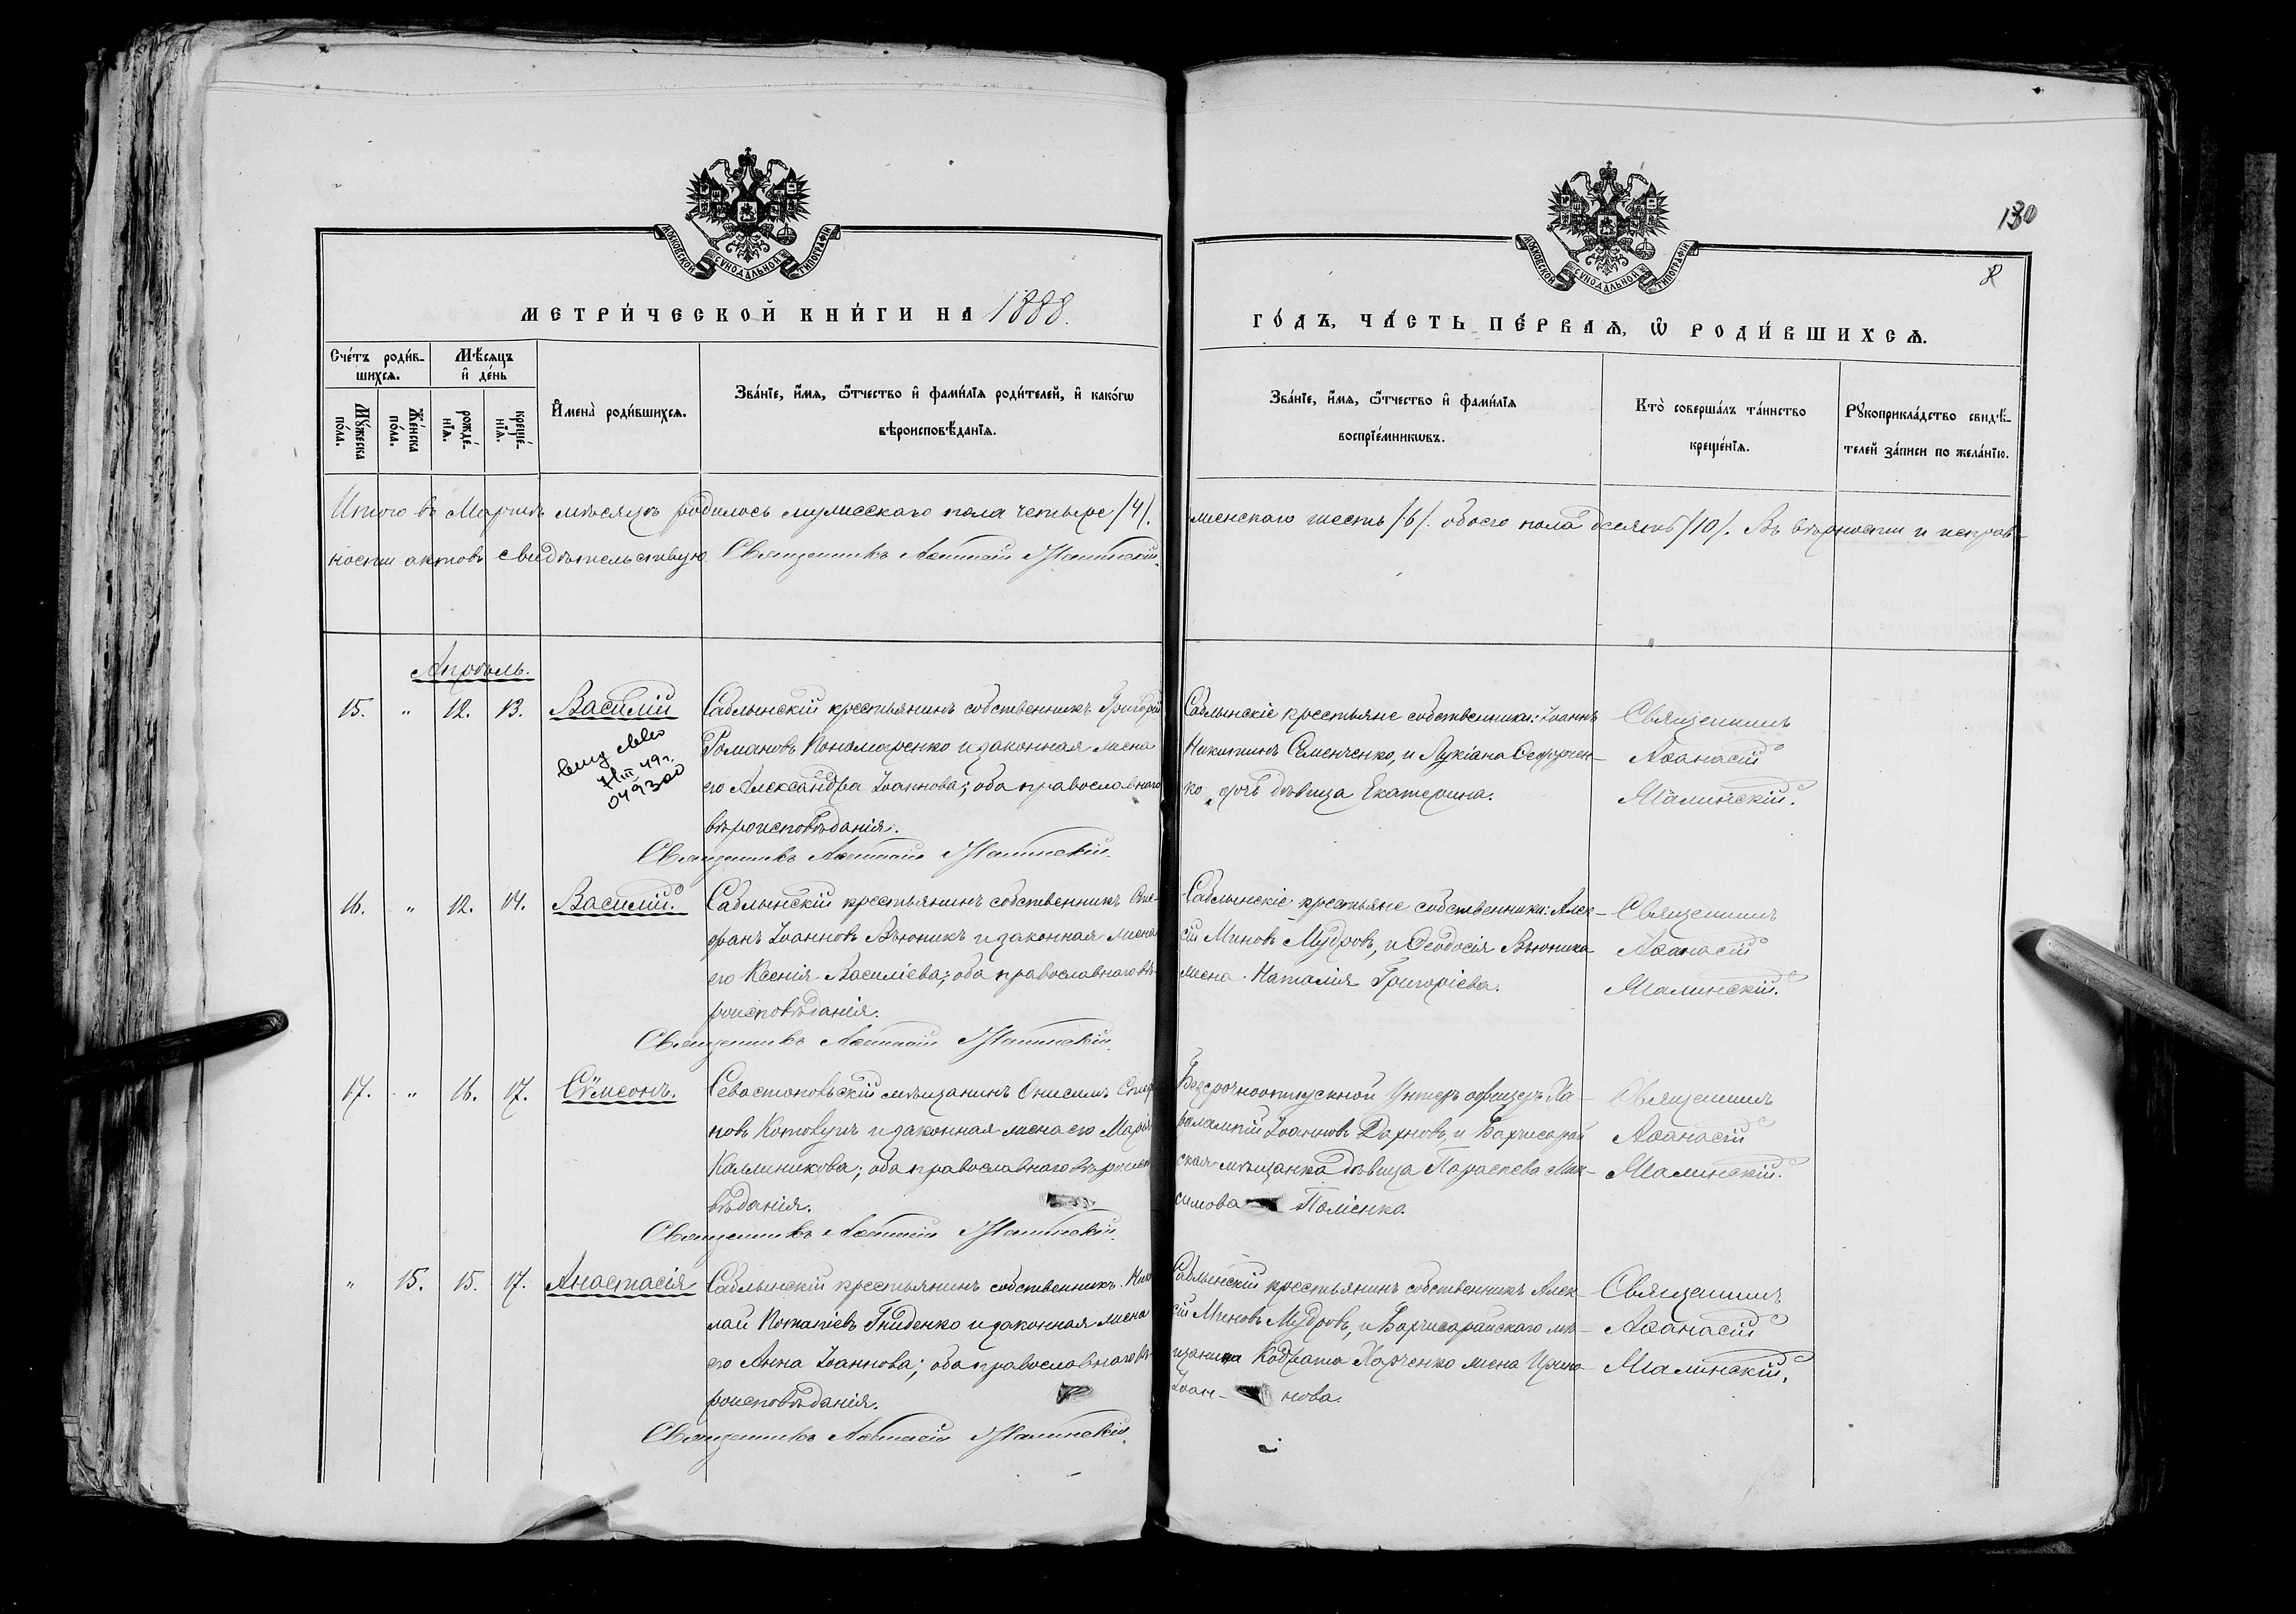 130
8
МОСКОВСКОЙ СѴНОДАЛЬНОЙ ТИПОГРАФІИ
МОСКОВСКОЙ СѴНОДАЛЬНОЙ ТИПОГРАФІИ
МЕТРИ́ЧЕСКОЙ КНИ́ГИ НА 1888.
ГО́ДЪ, ЧА́СТЬ ПЕ́РВАѦ, Ѡ҆ РОДИ́ВШИХСѦ.
Сче́тъ роди́в-
шихсѧ.
Мѣ́сѧцъ
и҆ де́нь
Мꙋ́жеска
по́ла.
Же́нска
по́ла.
рожде́-
нїѧ.
креще́-
нїѧ.
И҆мена̀ роди́вшихсѧ.
Зва́нїе, и҆́мѧ, ѻ҆́тчество и҆ фами́лїѧ роди́телей, и҆ како́гѡ
вѣроисповѣ́данїѧ.
Зва́нїе, и҆́мѧ, ѻ҆́тчество и҆ фами́лїѧ
воспрїе́мникѡвъ.
Кто̀ соверша́лъ та́инство
креще́нїѧ.
Рꙋкоприкла́дство свидѣ́-
телей за́писи по жела́нїю.
Итого въ Мартѣ мѣсяцѣ родилось мужескаго пола четыре /4/.
женскаго шесть /6/. обоего пола десять /10/. Въ вѣрности и исправ-
ности актовъ свидѣтельствую Священникъ Аѳанасій Малинскій.
Апрѣль.
15. " 12. 13. Василій
49 г.
Саблынскій крестьянинъ собственникъ Григорій
Романовъ Пономаренко и законная жена
его Александра Іоаннова; оба православнаго
вѣроисповѣданія.
Священникъ Аѳанасій Малинскій.
Саблынскіе крестьяне собственники: Іоаннъ
Никитинъ Семенченко, и Лукіана
дочь дѣвица Екатерина.
Священникъ
Аѳанасій
Малинскій.
16. " 12. 14. Василій.
Саблынскій крестьянинъ собственникъ Сте-
фанъ Іоанновъ Вьюникъ и законная жена
его Ксенія Василіева; оба православнаго вѣ-
роисповѣданія.
Священникъ Аѳанасій Малинскій.
Саблынскіе крестьяне собственники: Алек-
сій Миновъ Мудровъ, и Ѳеодосія Вьюника
жена Наталія Григоріева.
Священникъ
Аѳанасій
Малинскій.
17. " 16. 17. Сѵмеонъ.
Севастопольскій мѣщанинъ Онисимъ Стеф
новъ и законная жена его Марія
Каллиникова; оба православнаго вѣроиспо
вѣданія.
Священникъ Аѳанасій Малинскій.
Безсрочноотпускной Унтеръ офицеръ Ха-
ралампій Іоанновъ и Бахчисарай
ская мѣщанка дѣвица Параскева Мак-
симова Паліенко.
Священникъ
Аѳанасій
Малинскій.
" 15. 15. 17. Анастасія
Саблынскій крестьянинъ собственникъ Нико
лай Потапіевъ Гниденко и законная жена
его Анна Іоаннова; оба православнаго вѣ-
роисповѣданія.
Священникъ Аѳанасій Малинскій.
Саблынскій крестьянинъ собственникъ Алек-
сій Миновъ Мудровъ, и Бахчисарайскаго мѣ-
щанина Кодрата Харченко жена Ирина
Іоан- нова.
Священникъ
Аѳанасій
Малинскій.